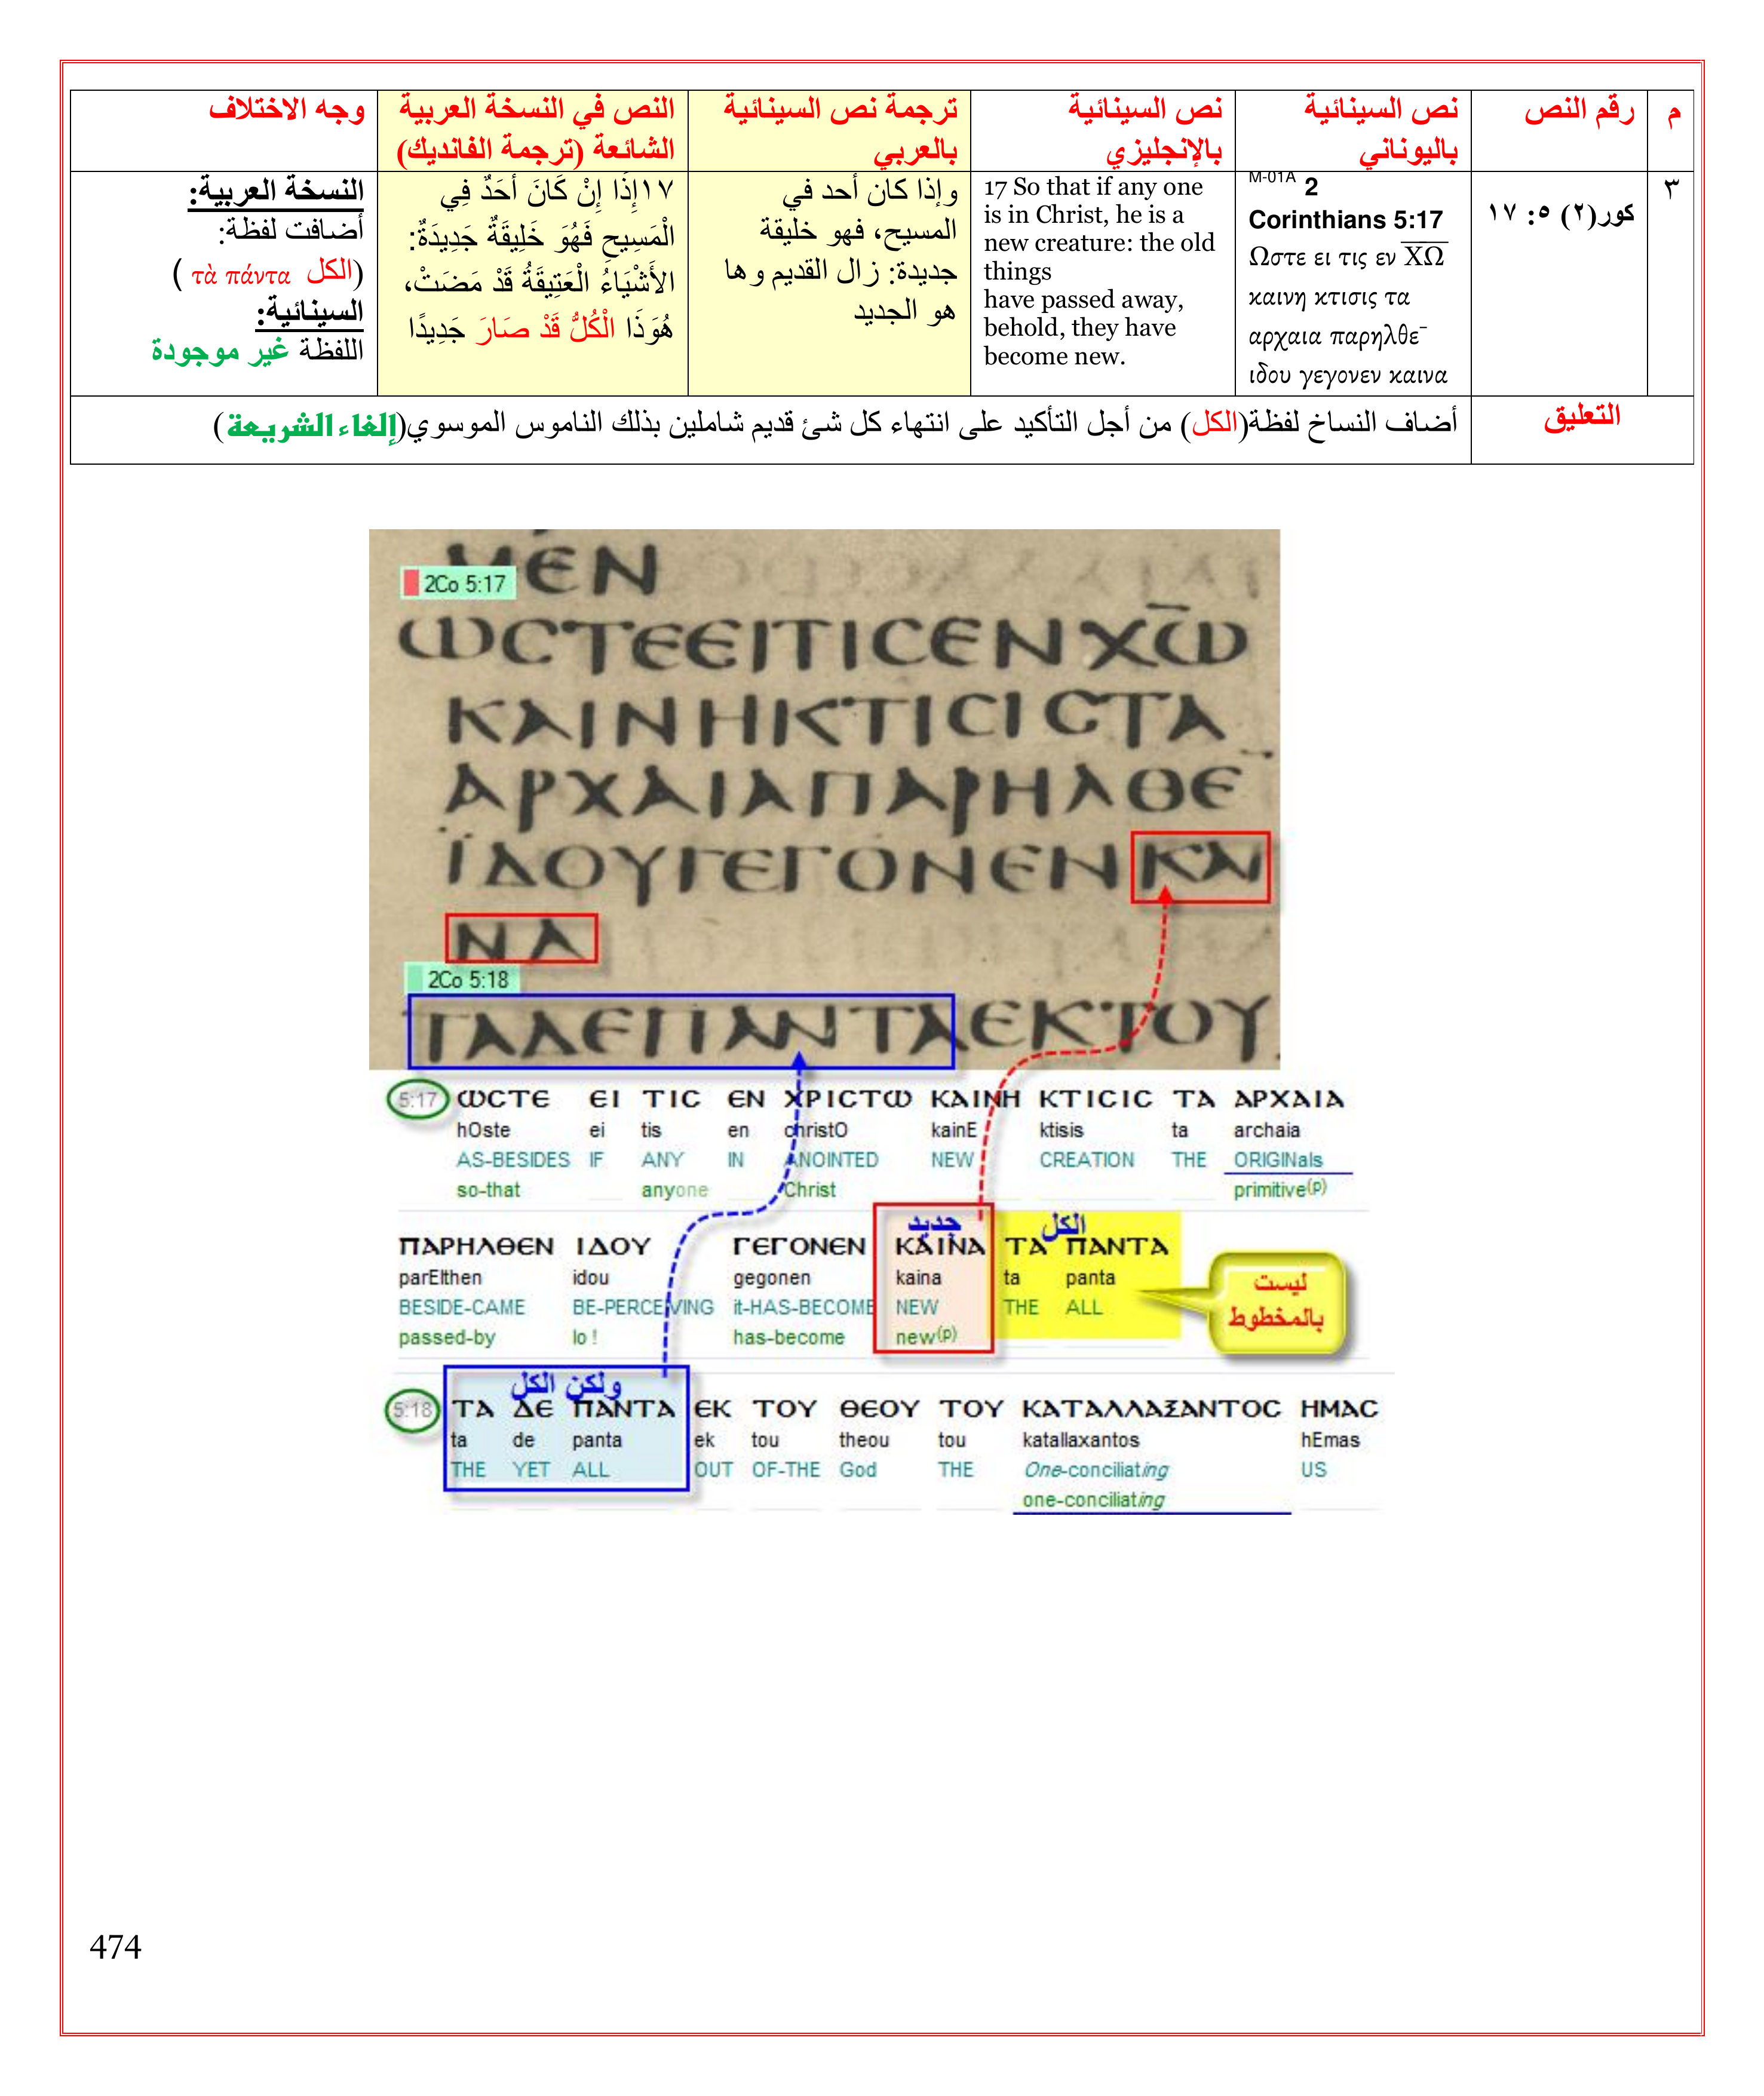 م
رقم النص
نص السينائية
باليوناني
نص السينائية
بالإنجليزي
ترجمة نص السينائية
بالعربي
النص في النسخة العربية
الشائعة (ترجمة الفانديك)
وجه الاختلاف
٣
كور(٢) ٥: ١٧
M-01A 2
Corinthians 5:17
Ωστε ει τις εν Χ̅Ω̅
καινη κτισις τα
αρχαια παρηλθε¯
ιδου γεγονεν καινα
17 So that if any one
is in Christ, he is a
new creature: the old
things
have passed away,
behold, they have
become new.
وإذا كان أحد في
المسيح، فهو خليقة
جديدة: زال القديم وها
هو الجديد
١٧إِذًا إِنْ كَانَ أَحَدٌ فِي
الْمَسِيحِ فَهُوَ خَلِيقَةٌ جَدِيدَةٌ:
الأَشْيَاءُ الْعَتِيقَةُ قَدْ مَضَتْ،
هُوَذَا الْكُلُّ قَدْ صَارَ جَدِيدًا
النسخة العربية:
أضافت لفظة:
(الكل τὰ πάντα )
السينائية:
اللفظة غير موجودة
التعليق
أضاف النساخ لفظة(الكل) من أجل التأكيد على انتهاء كل شئ قديم شاملين بذلك الناموس الموسوي(إلغاء الشريعة)
ΜΕΝ
2Co 5:17
ѠϹΤΕΕΙΤΙϹΕΝΧѠ̅
ΚΑΙΝΗΚΤΙϹΙϹΤΑ
ΑΡΧΑΙΑΠΑΡΗΛΘΕ¯
ΪΔΟΥΓΕΓΟΝΕΝΚΑΙ
ΝΑ
2Co 5:18
ΤΑΔΕΠΑΝΤΑΕΚΤΟΥ
5:17 ѠϹΤΕ ΕΙ ΤΙϹ ΕΝ ΧΡΙϹΤѠ ΚΑΙΝΗ ΚΤΙϹΙϹ ΤΑ ΑΡΧΑΙΑ
hOste ei tis en christO kainE ktisis ta archaia
AS-BESIDES IF ANY IN ANOINTED NEW CREATION THE ORIGINals
so-that anyone Christ primitive(p)
جديد الكل
ΠΑΡΗΛΘΕΝ ΙΔΟΥ ΓΕΓΟΝΕΝ ΚΑΙΝΑ ΤΑ ΠΑΝΤΑ
parElthen idou gegonen kaina ta panta
BESIDE-CAME BE-PERCEIVING it-HAS-BECOME NEW THE ALL
passed-by lo ! has-become new(p)
ليست
بالمخطوط
ولكن الكل
5:18 ΤΑ ΔΕ ΠΑΝΤΑ ΕΚ ΤΟΥ ΘΕΟΥ ΤΟΥ ΚΑΤΑΛΛΑΞΑΝΤΟϹ ΗΜΑϹ
ta de panta ek tou theou tou katallaxantos hEmas
THE YET ALL OUT OF-THE God THE One-conciliating US
one-conciliating
474